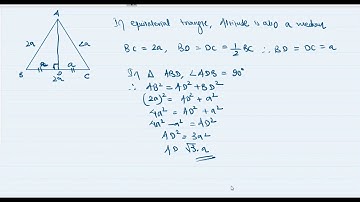 A
2a
2a
a
a
B
D
C
2a
In equilateral triangle, Altitude is also a median
BC = 2a, BD = DC = 1/2 BC ∴ BD = DC = a
In Δ ABD, ∠ADB = 90°
∴ AB² = AD² + BD²
(2a)² = AD² + a²
4a² = AD² + a²
4a² - a² = AD²
AD² = 3a²
AD √3. a